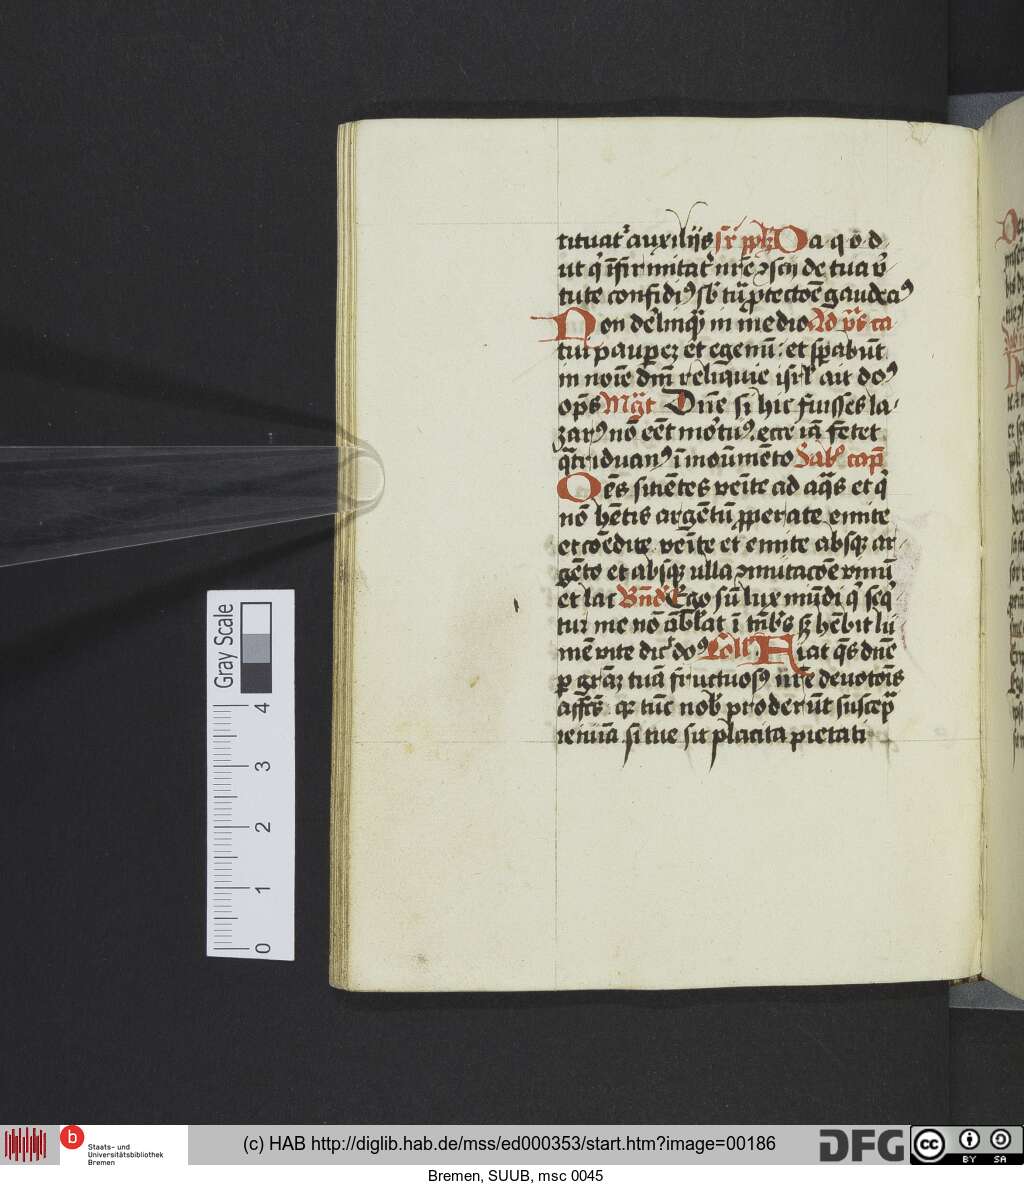 tituat᷑ auxilijs sr̄ pplm̄ Da q o d
ut q̄ īfirmitat᷑ nr̄e ꝯscij de tua v̄
tute confidim᷒ sb̄ tua ꝓtectōe gaudeam᷒
Non delinqȝ in medio Ad vr̄s ca
tui pauperē et egenū et spabūt
in noīe dn̄i reliquie isrl̄ ait do᷒
op̄s Mḡt Dn̄e si hic fuisses la
zar᷒ nō eēt mortu᷒ ecce iā fetet
q̄triduan᷒ ī monumēto Sabb̄ cap̄
Oēs sitiētes venīte ad aq̄s et q̄
nō hētis argētū ꝓperate emite
et comēdite venīte et emite absqȝ ar
gēto et absqȝ ulla ꝯmutacōe vinū
et lac Bn̄d Ego sū lux mūdi q̄ seq̄
tur me nō ābl̄at ī tn̄br̄s sȝ hēbit lu
mē vite dic̄ do᷒ Coll̄ Fiat q̄s dn̄e
p grāȝ tuā fructuos᷒ nr̄e deuotōis
affcs̄ qȝ tūc nob̄ proderūt suscep̄
ieiunia si tue sīt placita pietati
Gray Scale
4
3
2
1
0
b
Staats- und
Universitätsbibliothek
Bremen
(c) HAB http://diglib.hab.de/mss/ed000353/start.htm?image=00186
DFG
cc
BY SA
Bremen, SUUB, msc 0045